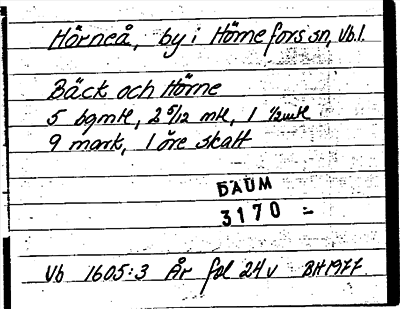 Hörneå, by i Hörnefors sn, Vb.l.
Bäck och Hörne
5 bgmk, 2 5/12 mk, 1 1/2mk
9 mark, 1 öre skatt
DAUM
3170
Vb 1605:3 År fol 24v BH1977.